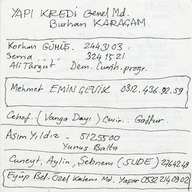 YAPI KREDİ Genel Md.
Burhan KARAÇAM
Korhan GÜMÜŞ. 2443103
Serna 3241521
Ali Targut Dem.
Mehmet EMİN GEVİK 0312.436.92.59
Cehof. (Vanga Dayı) Çevir. Gaffur
Asım Yıldız - 5125500
Yunus Balta
Cüneyt, Aylin, Şebnem (SUDE) 2764248
Eyüp Bel. Özel Kalem Md. Yaşar 0532 214 09 02